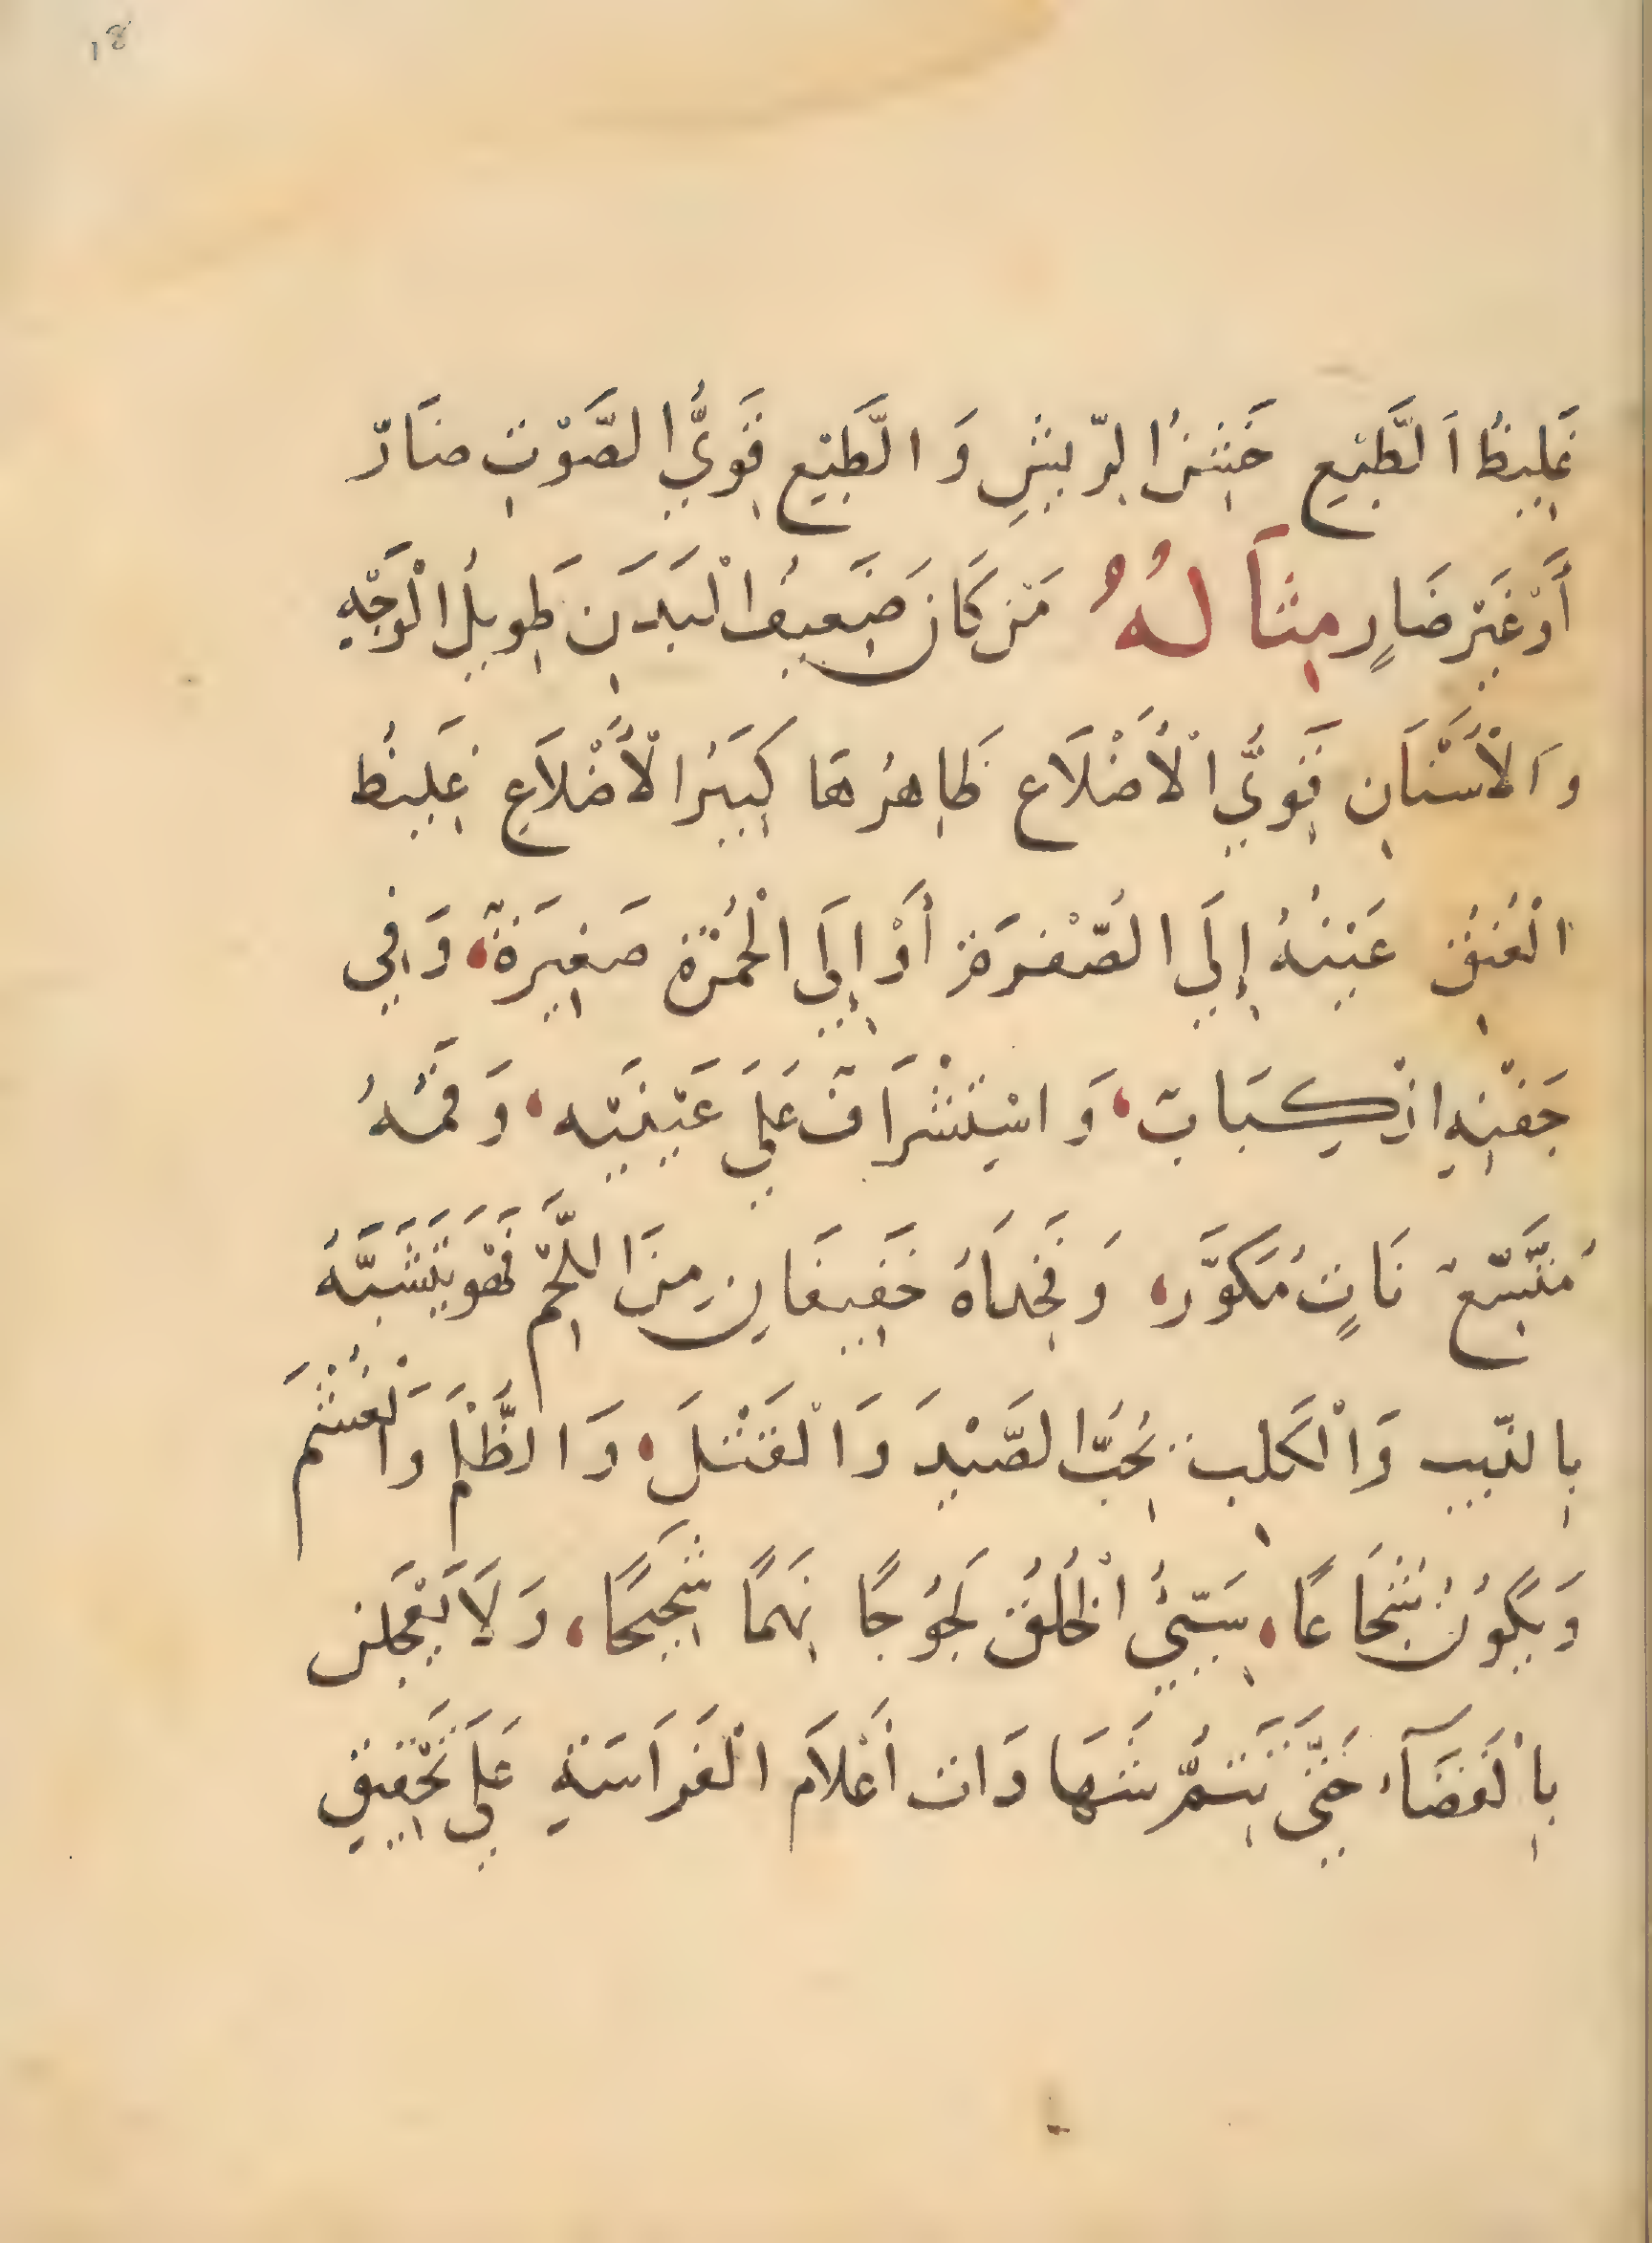 18
غَلِيظُ اَلطَّبْعِ خَشِنُ الرِّيشِ وَالطَّبْعِ قَوِيُّ الصَّوْتِ ضَارّ
أَوْ غَيْر ضَارٍ مِثَالهُ مَنْ كَانَ ضَعِيفُ الْبَدَنِ طَوِيلُ الْوَجْهِ
وَالْأَسْنَانِ قَوِيُّ الْأَضْلَاع ظَاهِرُهَا كَبِيرُ الْأَضْلَاعِ غَلِيظُ
الْعُنُقِ عَيْنُهُ إِلَي الصُّفْرَةِ أَوْ إِلَي الْحُمْرَةِ صَغِيرَةٌ، وَفِي
جَفْنِهِ انْكِبَابٌ، وَاسْتِشْرَافٌ عَلَي عَيْنَيْهِ، وَفَمُّهُ
مُتَّسِّعٌ نَاتٍ مُكَوَّر، وَفَخِذَاهُ خَفِيفَانِ مِنَ اللَّحْمِ فَهْوَ يَتَشَبَّهُ
بِالذِّيبِ وَالْكَلبِ يُحِبُّ الصَّيْدَ وَالْقَتْلَ، وَالظُّلْمَ وَالْغُشْمَ
وَيَكُونُ شُجَاعًا، سَيِّئُ الْخُلُقِ لَجُوجًا نَهِمًا شَحِيحًا، وَلَا يَعْجَلن
بِالْقَضَآءِ حَتَّي تَتِمُّ شَهَادَات أَعْلَام الْفَرَاسَةِ عَلَي تَحْقِيق